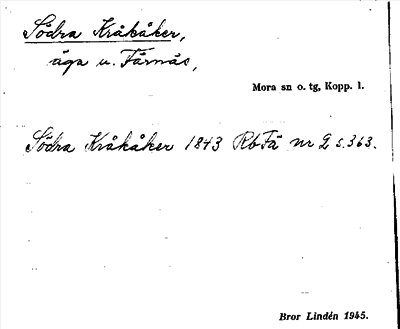 Södra Kråkåker,
äga u. Färnäs,
Mora sn o. tg, Kopp. l.
Södra Kråkåker 1843 Rb Fä nr 2 s. 363.
Bror Lindén 1945.